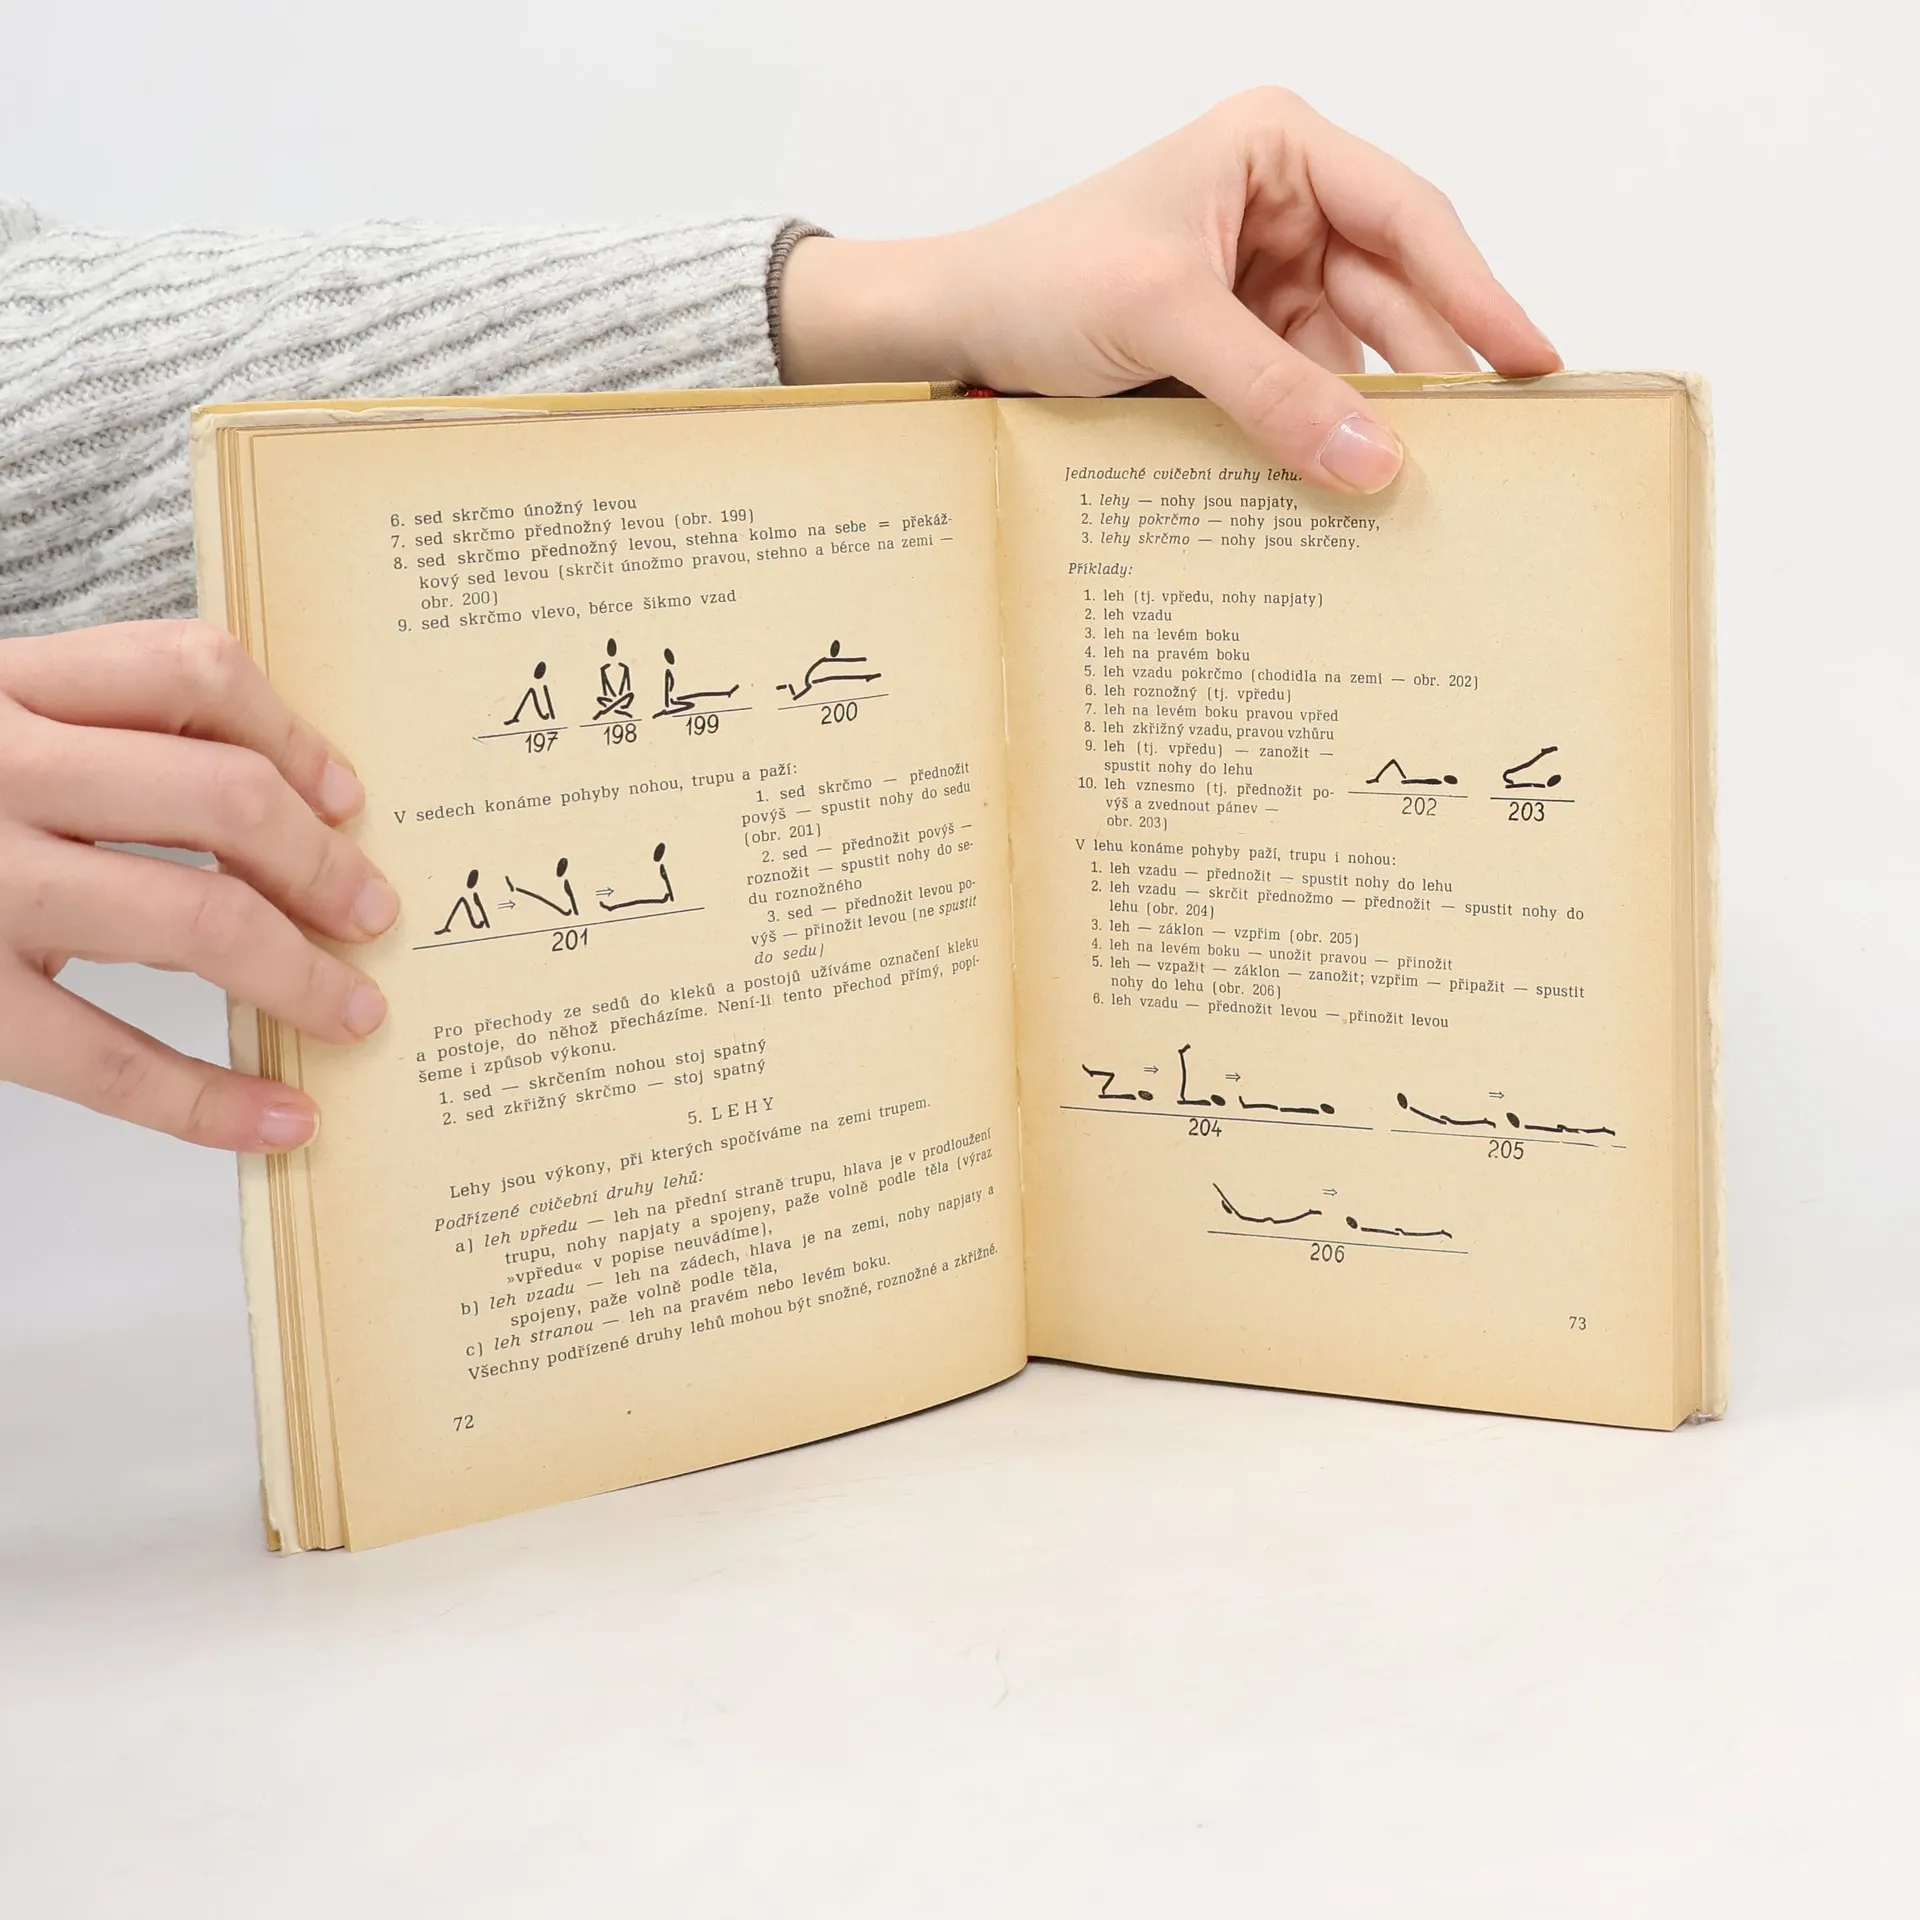 6. sed skrčmo únožný levou
7. sed skrčmo přednožný levou (obr. 199)
8. sed skrčmo přednožný levou, stehna kolmo na sebe = překáž-
kový sed levou (skrčit únožmo pravou, stehno a bérce na zemi —
obr. 200)
9. sed skrčmo vlevo, bérce šikmo vzad
197 198 199 200
V sedech konáme pohyby nohou, trupu a paží:
1. sed skrčmo — přednožit
povýš — spustit nohy do sedu
(obr. 201)
2. sed — přednožit povýš —
roznožit — spustit nohy do se-
du roznožného
3. sed — přednožit levou po-
výš — přinožit levou (ne spustit
do sedu)
201
Pro přechody ze sedů do kleků a postojů užíváme označení kleku
a postoje, do něhož přecházíme. Není-li tento přechod přímý, popí-
šeme i způsob výkonu.
1. sed — skrčením nohou stoj spatný
2. sed zkřižný skrčmo — stoj spatný
5. LEHY
Lehy jsou výkony, při kterých spočíváme na zemi trupem.
Podřízené cvičební druhy lehů:
a) leh vpředu — leh na přední straně trupu, hlava je v prodloužení
trupu, nohy napjaty a spojeny, paže volně podle těla (výraz
»vpředu« v popise neuvádíme),
b) leh vzadu — leh na zádech, hlava je na zemi, nohy napjaty a
spojeny, paže volně podle těla,
c) leh stranou — leh na pravém nebo levém boku.
Všechny podřízené druhy lehů mohou být snožné, roznožné a zkřižné.
72
Jednoduché cvičební druhy lehu:
1. lehy — nohy jsou napjaty,
2. lehy pokrčmo — nohy jsou pokrčeny,
3. lehy skrčmo — nohy jsou skrčeny.
Příklady:
1. leh (tj. vpředu, nohy napjaty)
2. leh vzadu
3. leh na levém boku
4. leh na pravém boku
5. leh vzadu pokrčmo (chodidla na zemi — obr. 202)
6. leh roznožný (tj. vpředu)
7. leh na levém boku pravou vpřed
8. leh zkřižný vzadu, pravou vzhůru
9. leh (tj. vpředu) — zanožit —
spustit nohy do lehu
10. leh vznesmo (tj. přednožit po-
výš a zvednout pánev —
obr. 203)
202 203
V lehu konáme pohyby paží, trupu i nohou:
1. leh vzadu — přednožit — spustit nohy do lehu
2. leh vzadu — skrčit přednožmo — přednožit — spustit nohy do
lehu (obr. 204)
3. leh — záklon — vzpřim (obr. 205)
4. leh na levém boku — unožit pravou — přinožit
5. leh — vzpažit — záklon — zanožit; vzpřim — připažit — spustit
nohy do lehu (obr. 206)
6. leh vzadu — přednožit levou — přinožit levou
204 205
206
73